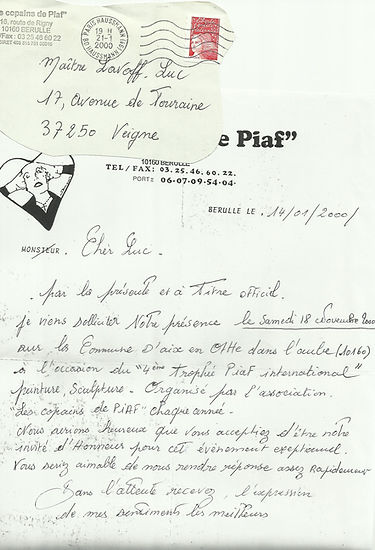 copains de Piaf"
18, route de Rigny
10160 BERULLE
/Fax : 03 25 46 60 22
80 PARIS HAUSSMANN
19 H
21-1
2000
Maître Lavoff. Luc
17, Avenue de Touraine
37250 Veigne
e Piaf"
10160 BERULLE
TEL/FAX: 03.25.46.60.22.
PORT: 06-07-09-54-04.
BERULLE LE . 14/01/2000/
MONSIEUR . Cher Luc .
. par la présente et à titre officiel.
Je viens solliciter Notre présence le Samedi 18 Novembre 2000
sur la Commune D'aix en Othe dans l'aube (10160)
à l'occasion du "4ème Trophée Piaf international"
peinture, Sculpture . Organisé par l'association.
"Les copains de PIAF" chaque année .
Nous serions heureux que vous acceptiez d'être notre
invité d'Honneur pour cet évènement exceptionnel.
Vous seriez aimable de nous rendre réponse assez Rapidement
Dans l'attente recevez, l'expression
de mes sentiments les meilleurs